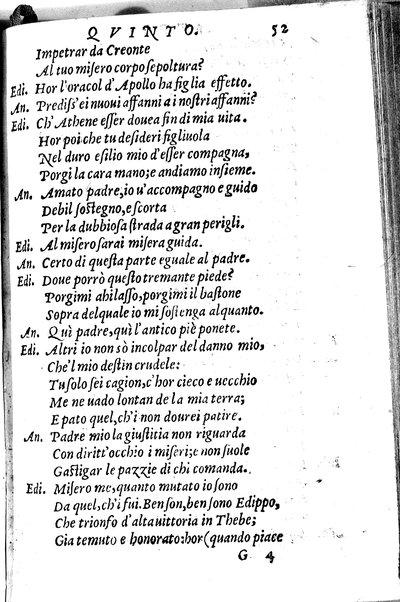 QVINTO. 52
Impetrar da Creonte
Al tuo misero corpo sepoltura?
Edi. Hor l'oracol d'Apollo ha figlia effetto.
An. Prediss'ei nuoui affanni a i nostri affanni?
Edi. Ch'Athene esser douea fin di mia uita.
Hor poi che tu desideri figliuola
Nel duro esilio mio d'esser compagna,
Porgi la cara mano; e andiamo insieme.
An. Amato padre, io u'accompagno e guido
Debil sostegno, e scorta
Per la dubbiosa strada a gran perigli.
Edi. Al misero sarai misera guida.
An. Certo di questa parte eguale al padre.
Edi. Doue porrò questo tremante piede?
Porgimi ahi lasso, porgimi il bastone
Sopra del quale io mi sostenga alquanto.
An. Quì padre, quì l'antico piè ponete.
Edi. Altri io non sò incolpar del danno mio,
Che'l mio destin crudele:
Tu solo sei cagion, c'hor cieco e uecchio
Me ne uado lontan de la mia terra;
E pato quel, ch'i non dourei patire.
An. Padre mio la giustitia non riguarda
Con diritt'occhio i miseri; e non suole
Gastigar le pazzie di chi comanda.
Edi. Misero me, quanto mutato io sono
Da quel, ch'i fui. Ben son, ben sono Edippo,
Che trionfo d'alta uittoria in Thebe;
Gia temuto e honorato: hor (quando piace
G 4